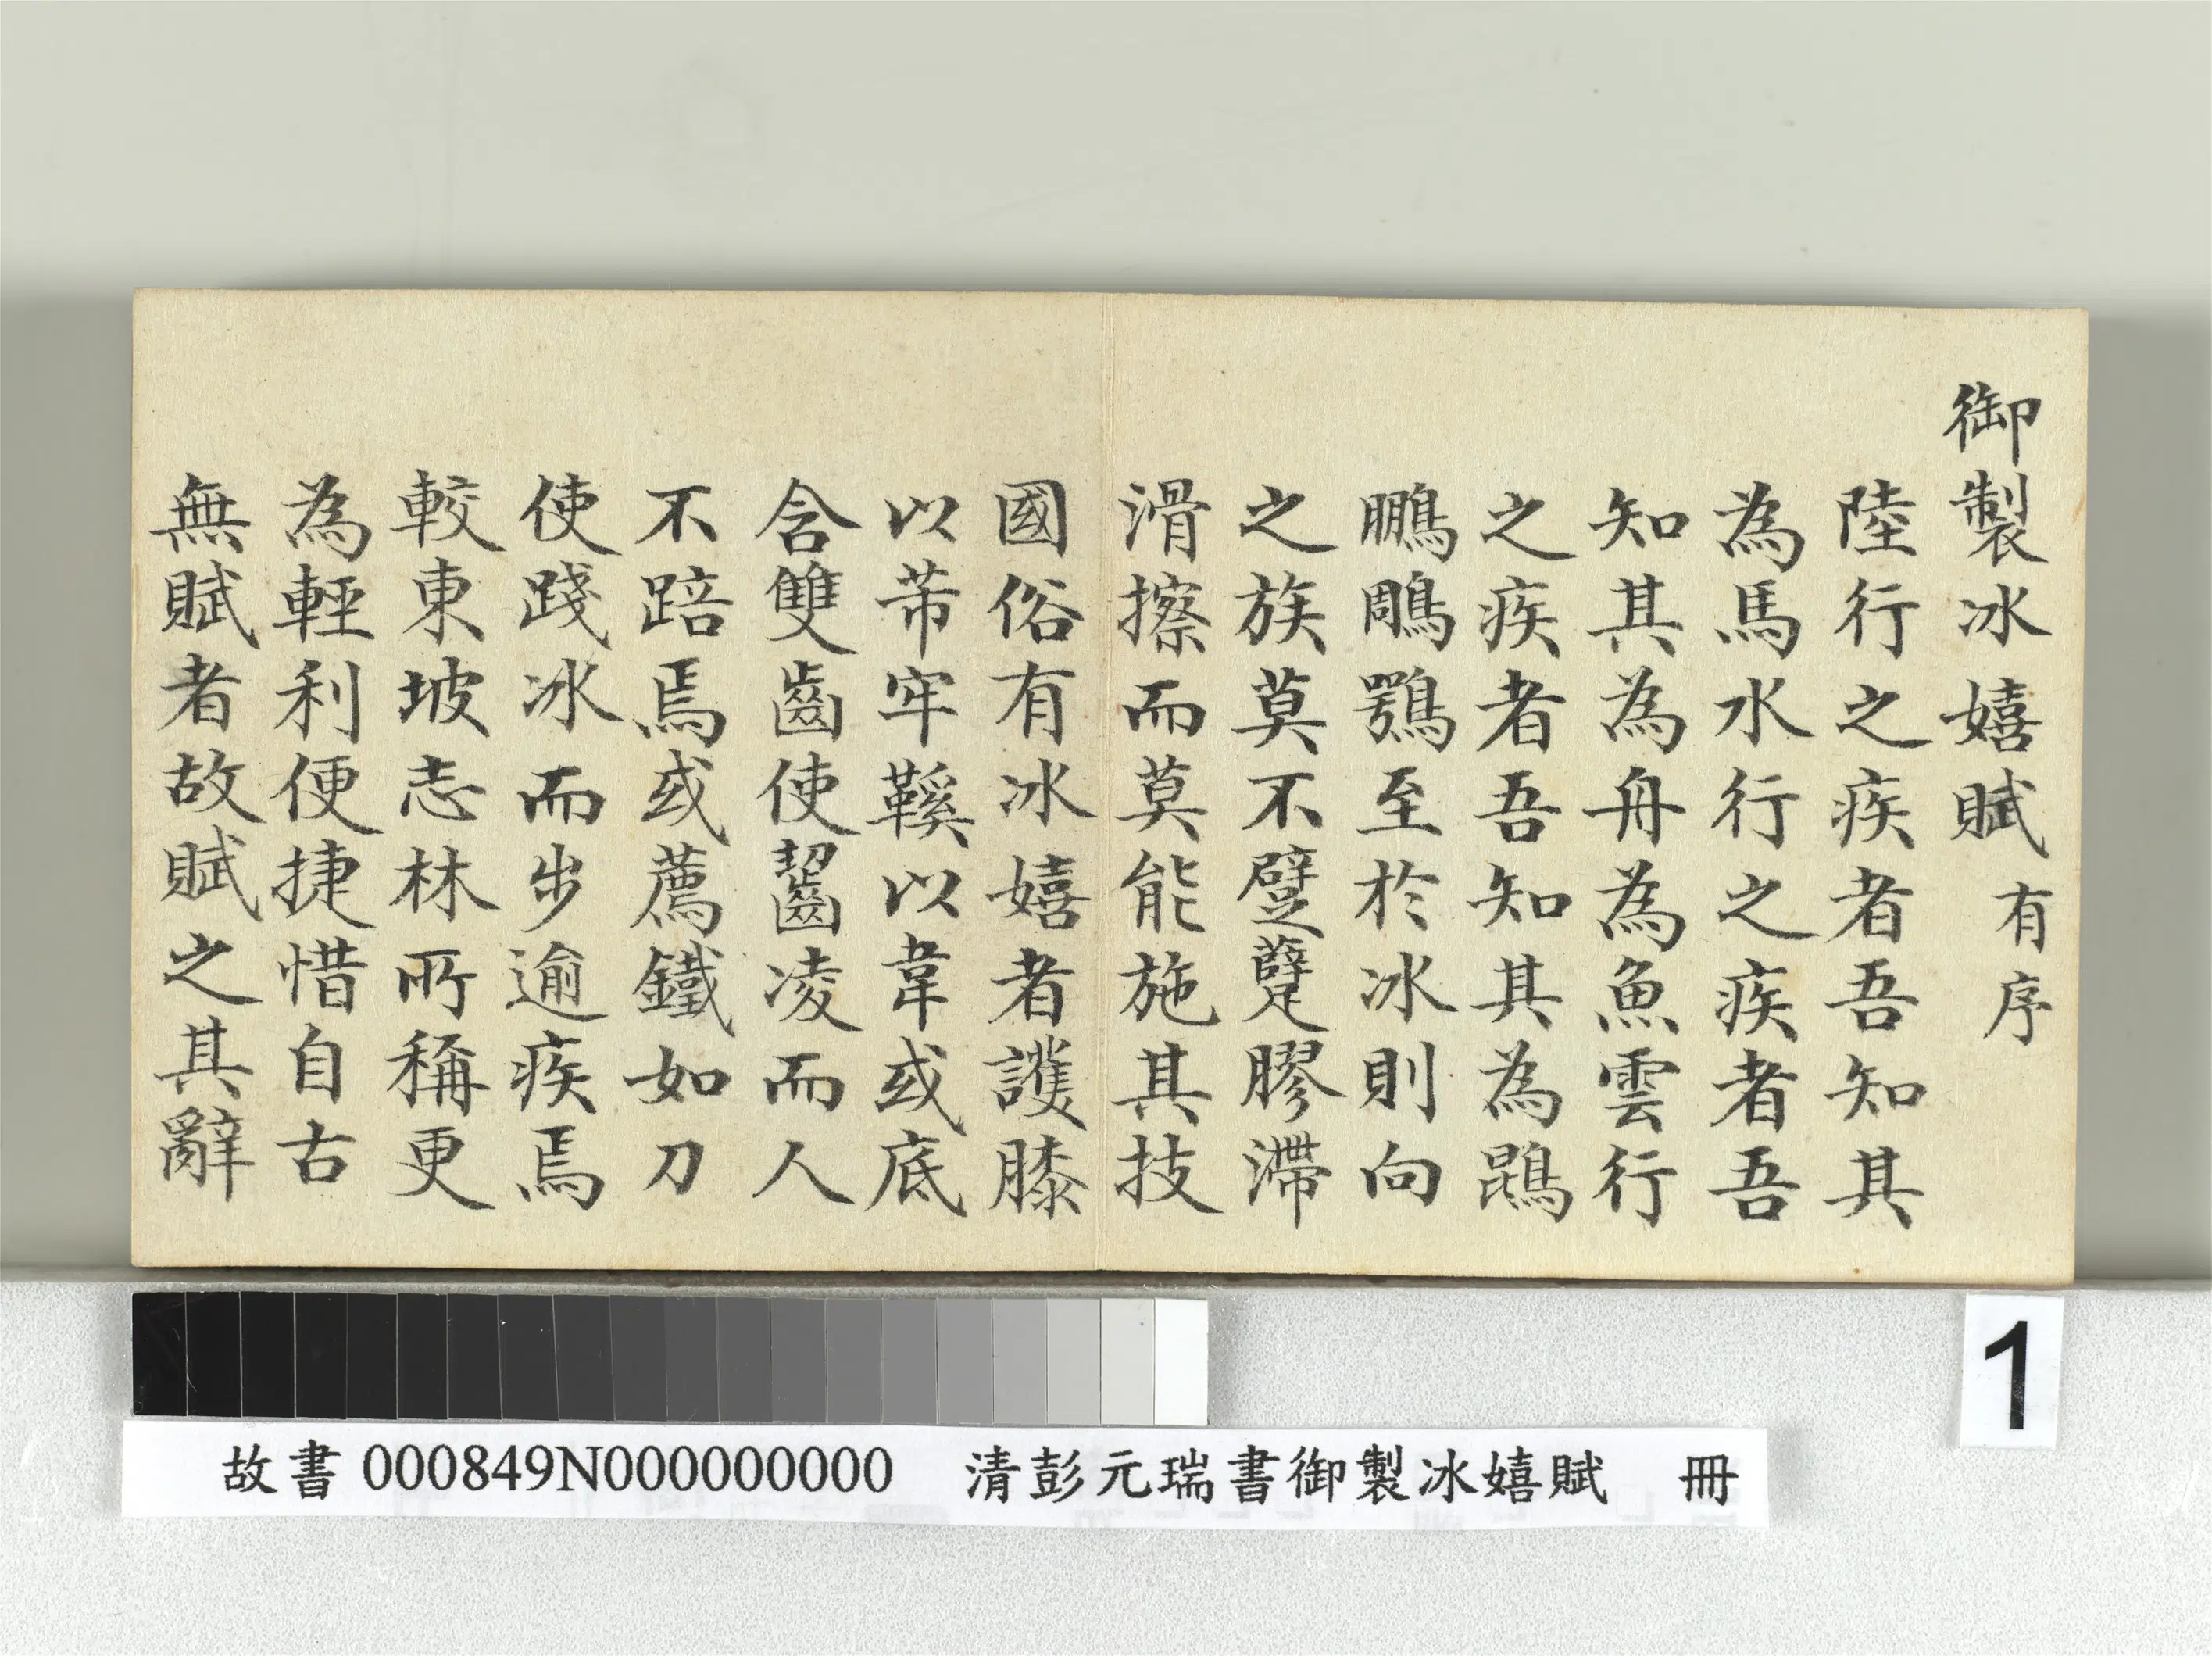 御製冰嬉賦有序
陸行之疾者吾知其
為馬水行之疾者吾
知其為舟為魚雲行
之疾者吾知其為鵾
鵬鵰鶚至於冰則向
之族莫不躄躠膠滯
滑擦而莫能施其技
國俗有冰嬉者護膝
以芾牢鞵以韋或底
含雙齒使齧凌而人
不踣焉或薦鐵如刀
使踐冰而步逾疾焉
較東坡志林所稱更
為輕利便捷惜自古
無賦者故賦之其辭
1
故書000849N000000000 清彭元瑞書御製冰嬉賦 冊